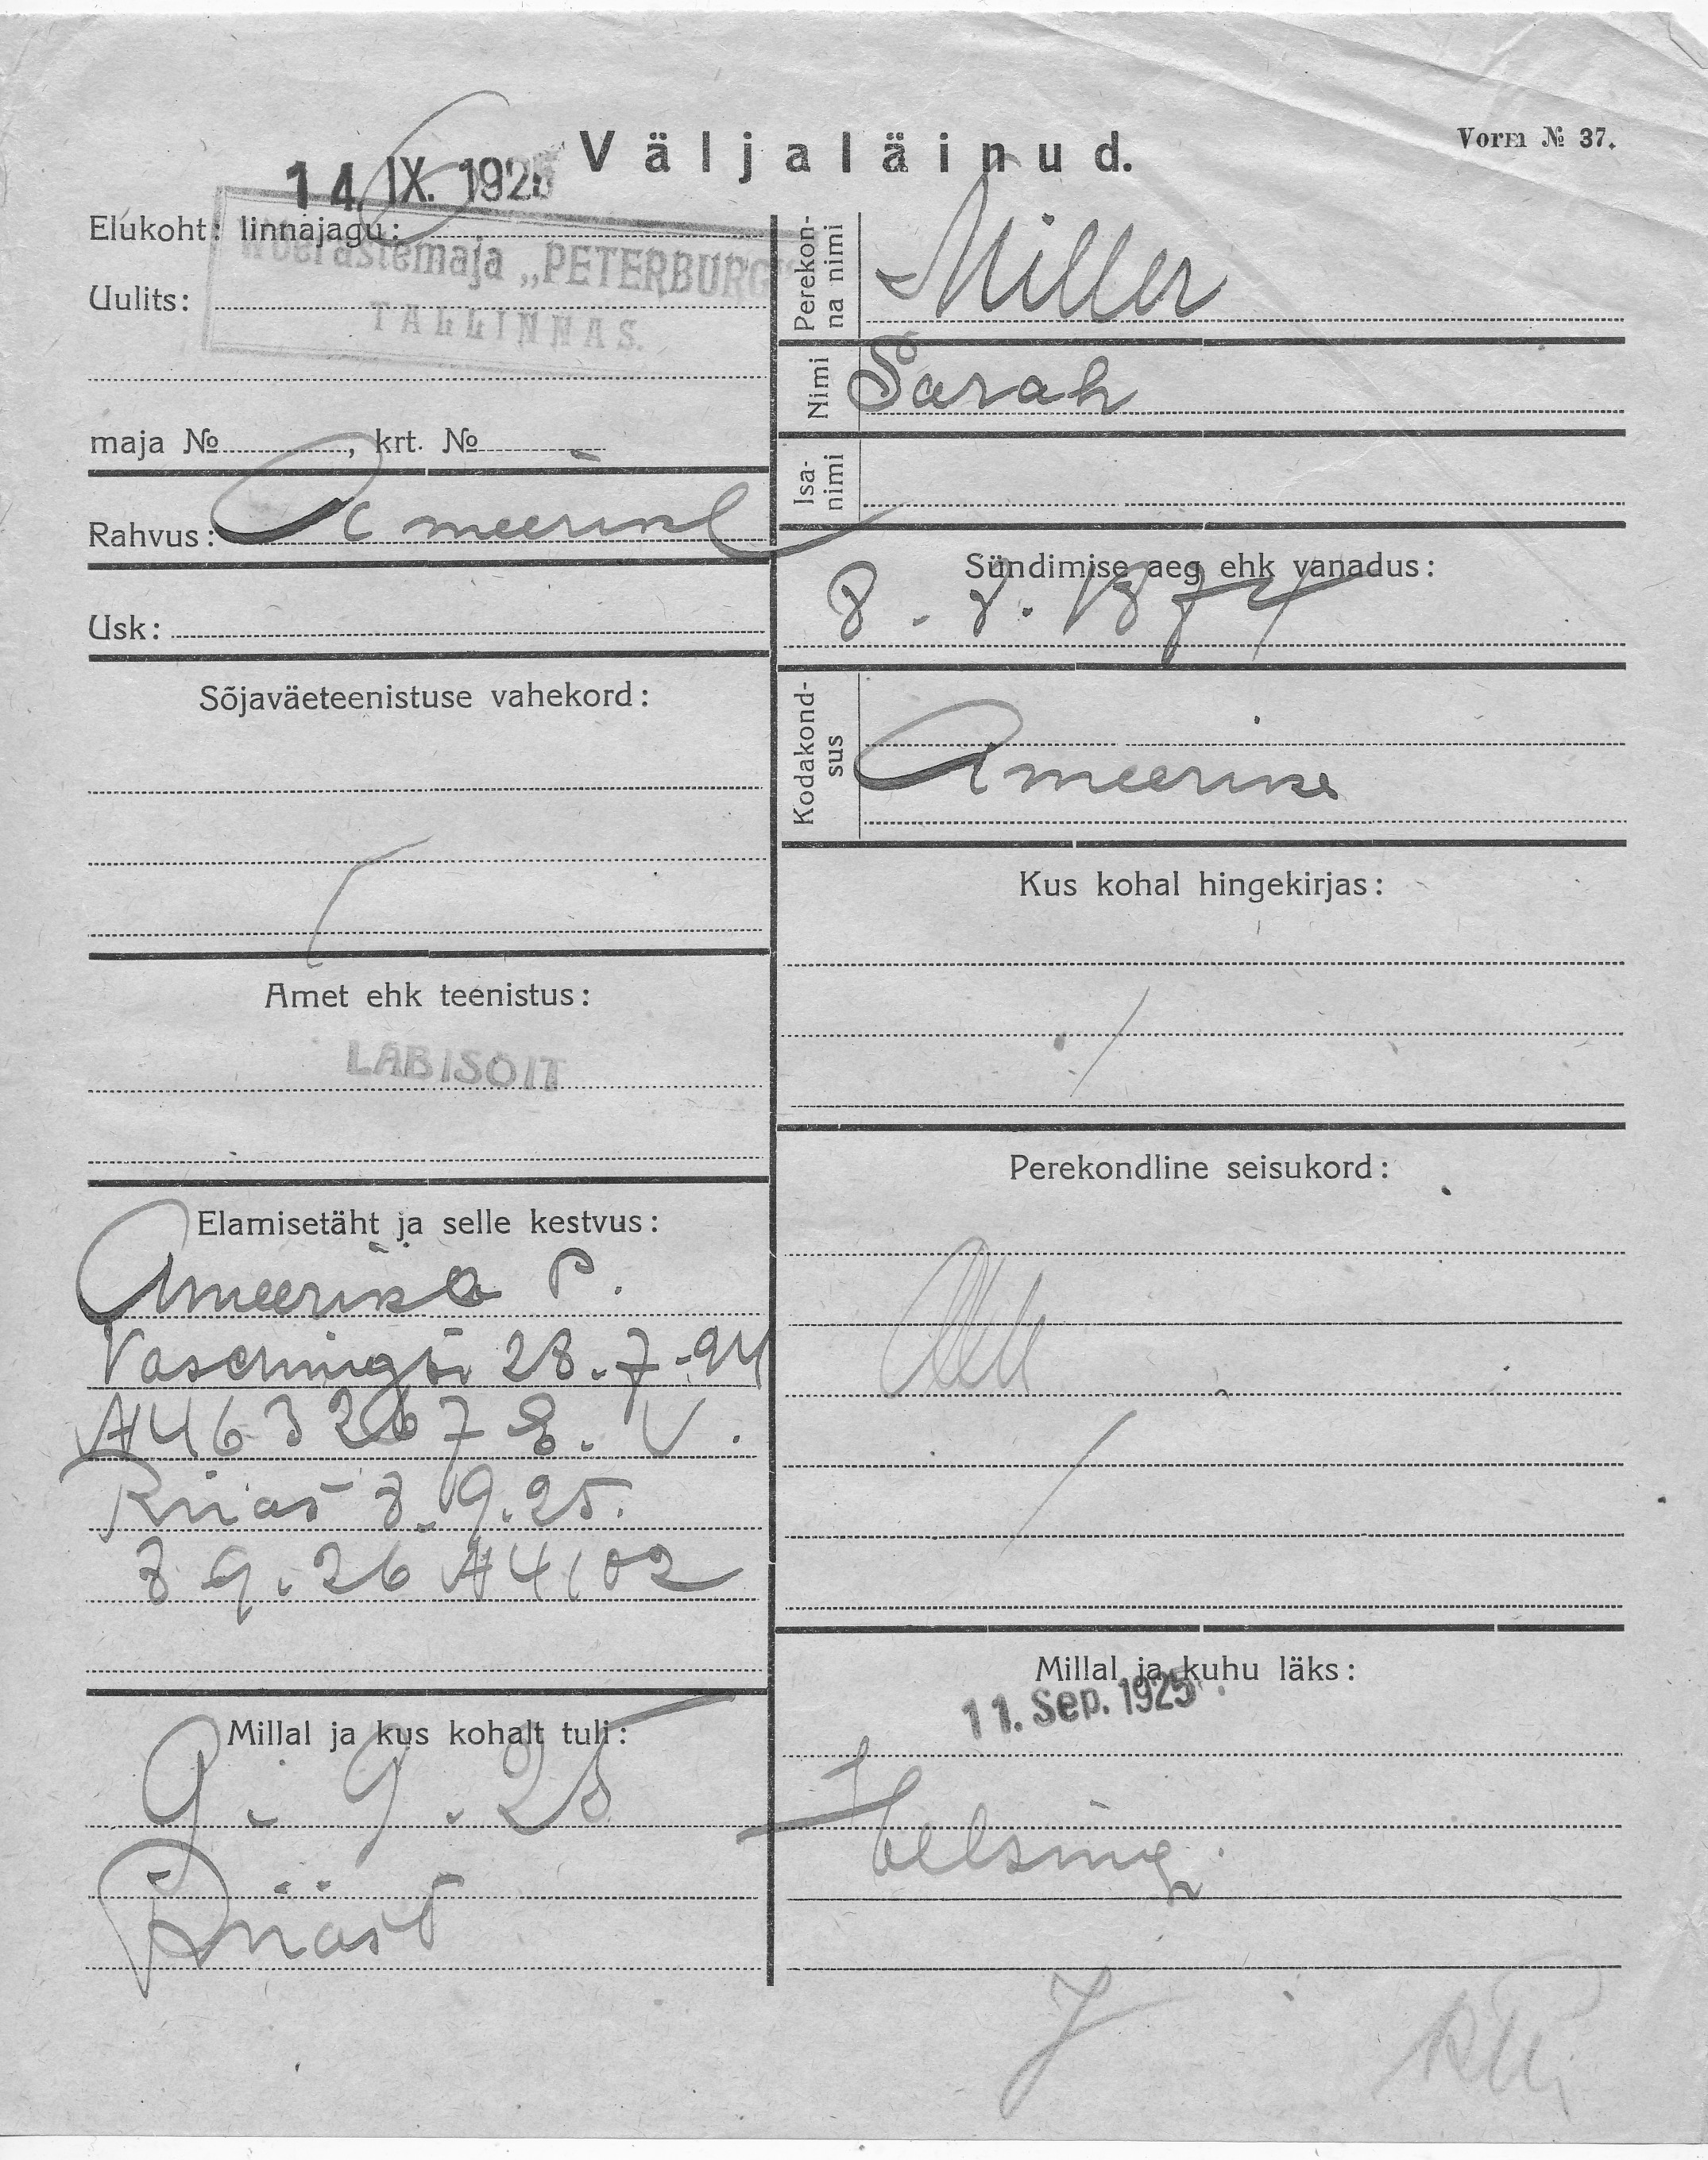 Väljaläinud.
Vorm № 37.
14. IX. 1925
Elukoht: linnajagu:
Võerastemaja „PETERBURG"
Uulits:
TALLINNAS.
maja №, krt. №
Rahvus: Ameerikl
Usk:
Sõjaväeteenistuse vahekord:
Amet ehk teenistus:
LÄBISÕIT
Elamisetäht ja selle kestvus:
Ameerika P.
28.7.
V.
Riias 8.9.25.
8 9.26 A4102
Millal ja kus kohalt tuli:
9. 9. 25
Riiast
Perekon-
na nimi
Miller
Nimi
Sarah
Isa-
nimi
Sündimise aeg ehk vanadus:
8. 8. 1874
Kodakond-
sus
Ameerika
Kus kohal hingekirjas:
Perekondline seisukord:
Millal ja kuhu läks:
11. Sep. 1925
Helsing.